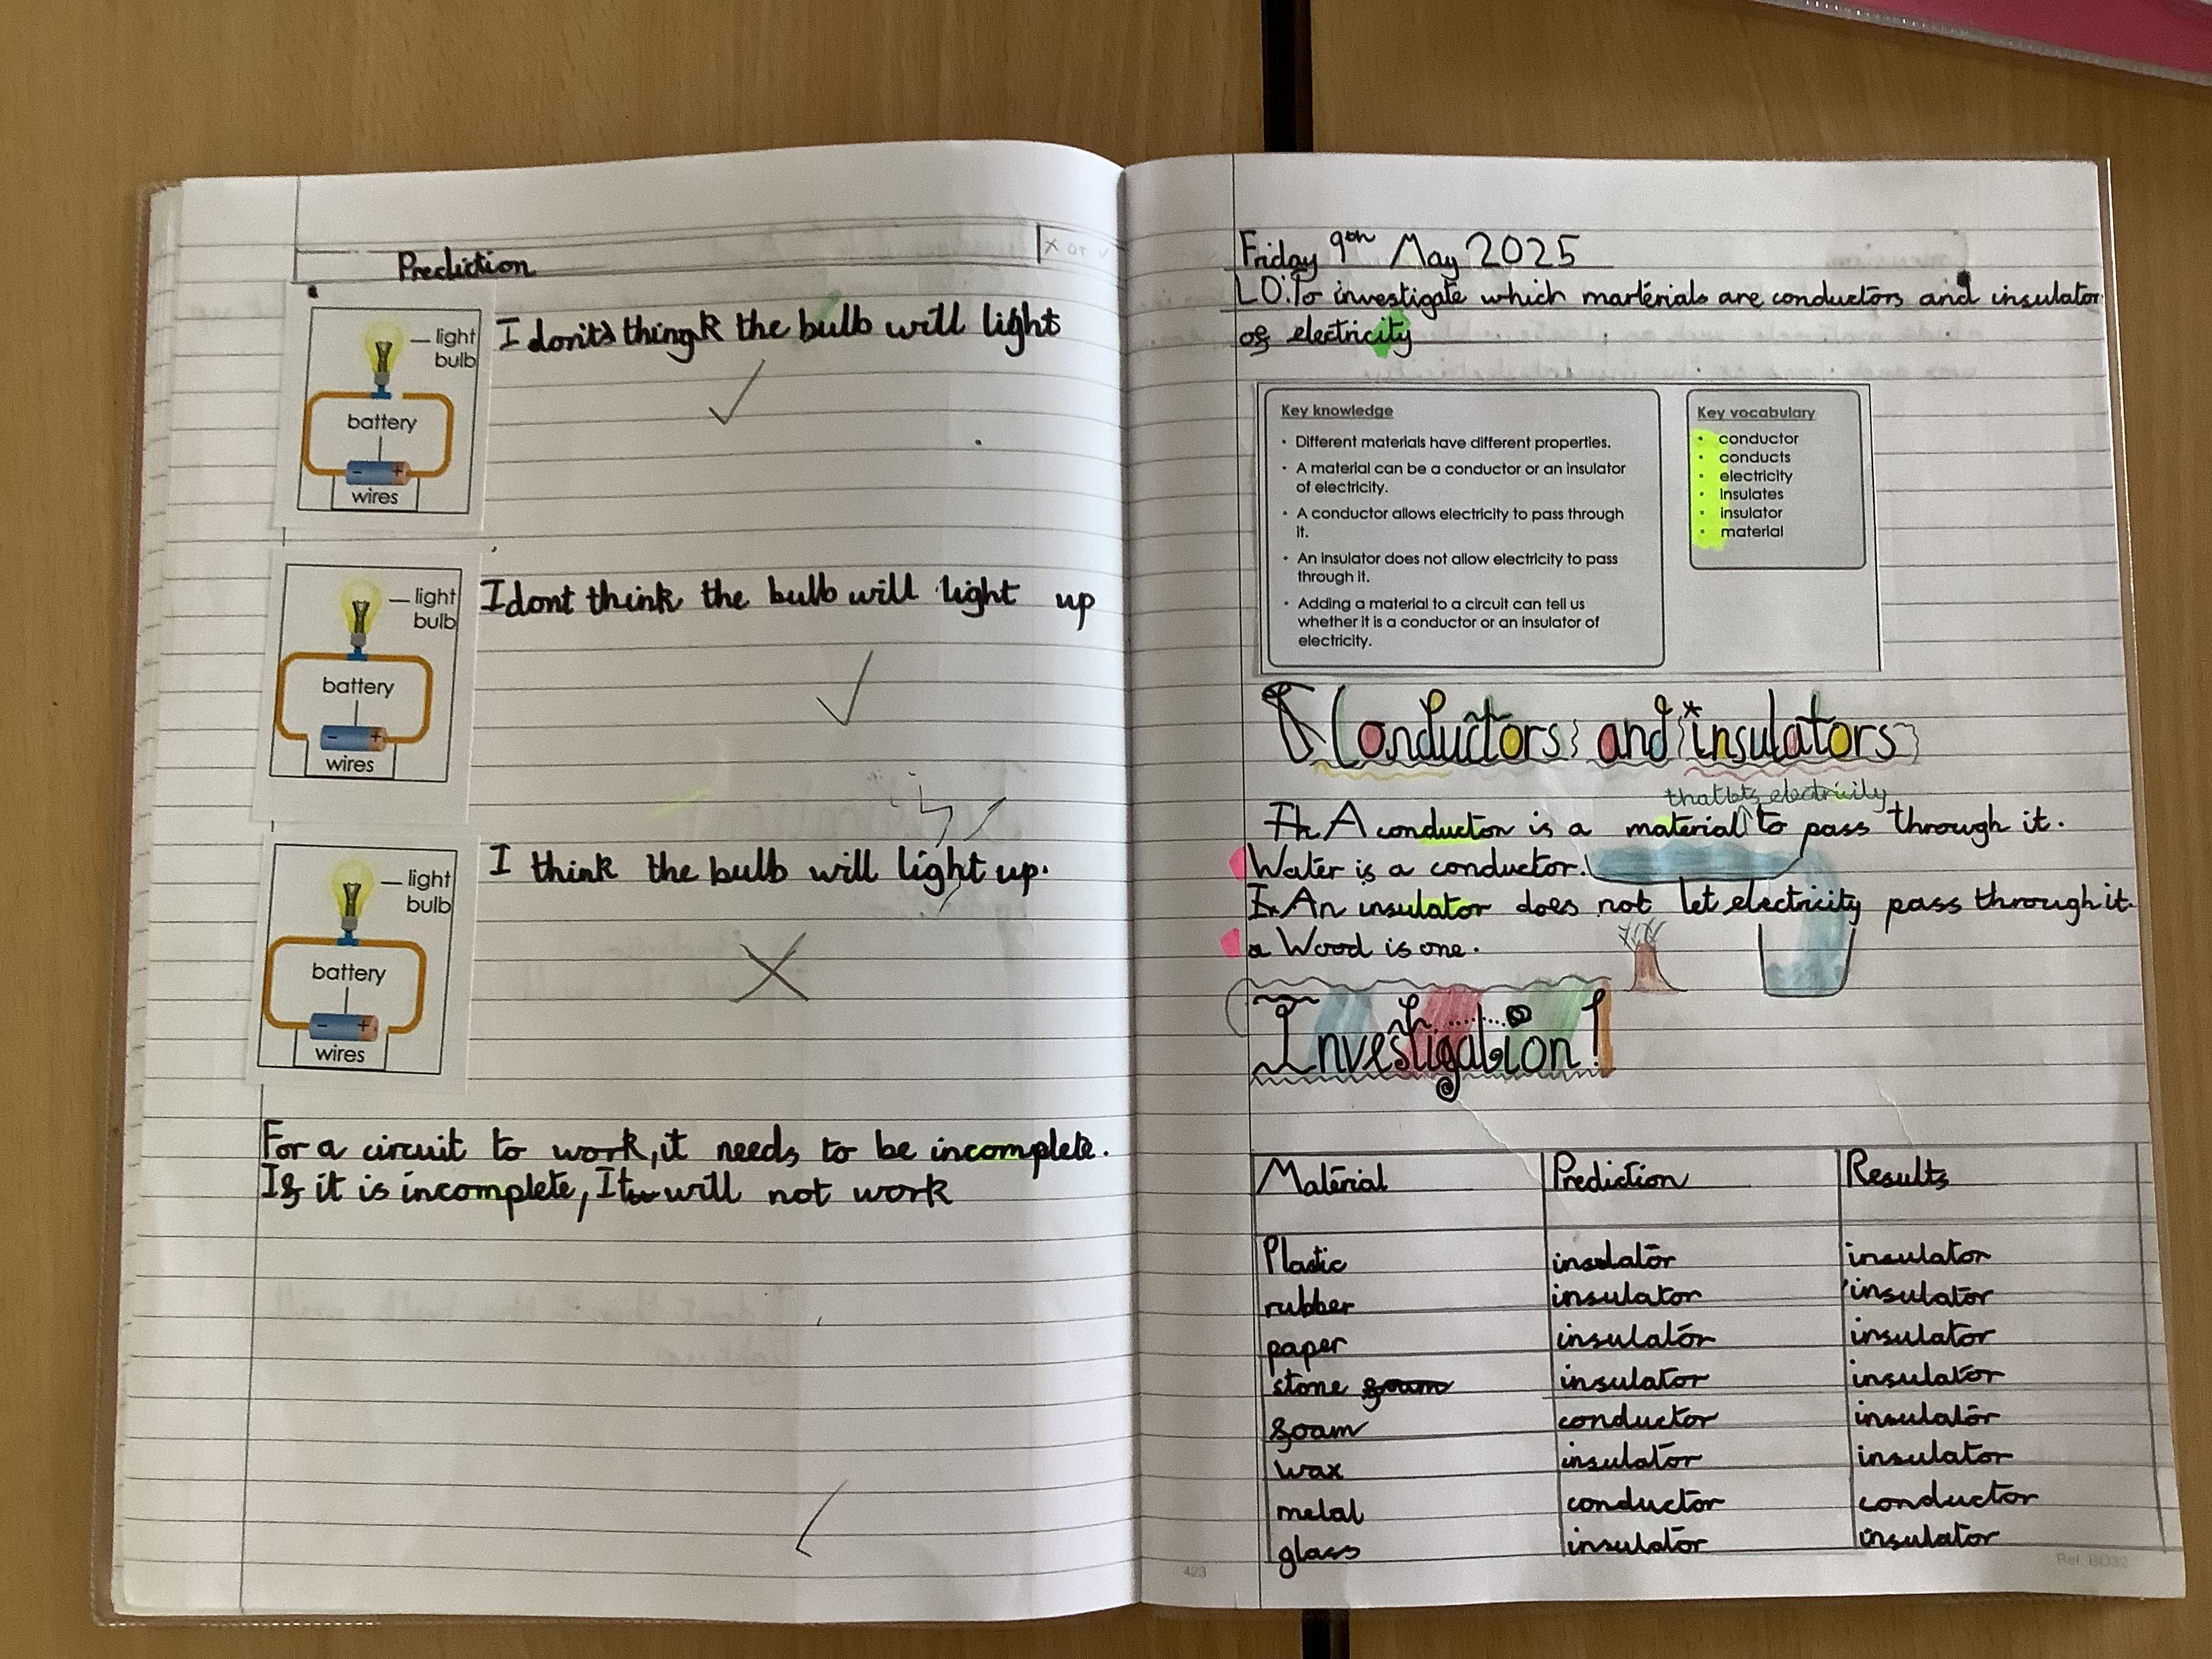 Prediction
✓ or X
light
bulb
battery
- +
wires
I don'ts thingk the bulb will light
light
bulb
battery
- +
wires
I dont think the bulb will light up
light
bulb
battery
- +
wires
I think the bulb will light up.
For a circuit to work, it needs to be incomplete.
If it is incomplete, It will not work
Friday 9th May 2025
LO: To investigate which martérials are conductors and insulator
of electricity
Key knowledge
• Different materials have different properties.
• A material can be a conductor or an insulator
of electricity.
• A conductor allows electricity to pass through
it.
• An insulator does not allow electricity to pass
through it.
• Adding a material to a circuit can tell us
whether it is a conductor or an insulator of
electricity.
Key vocabulary
• conductor
• conducts
• electricity
• insulates
• insulator
• material
Conductors and insulators
that lets electricity
A conductor is a material to pass through it.
Water is a conductor.
An insulator does not let electricity pass through it.
Wood is one.
Investigation!
Material Prediction Results
Plastic insulator insulator
rubber insulator insulator
paper insulator insulator
stone foam insulator insulator
foam conductor insulator
wax insulator insulator
metal conductor conductor
glass insulator insulator
423
Ref: BD32